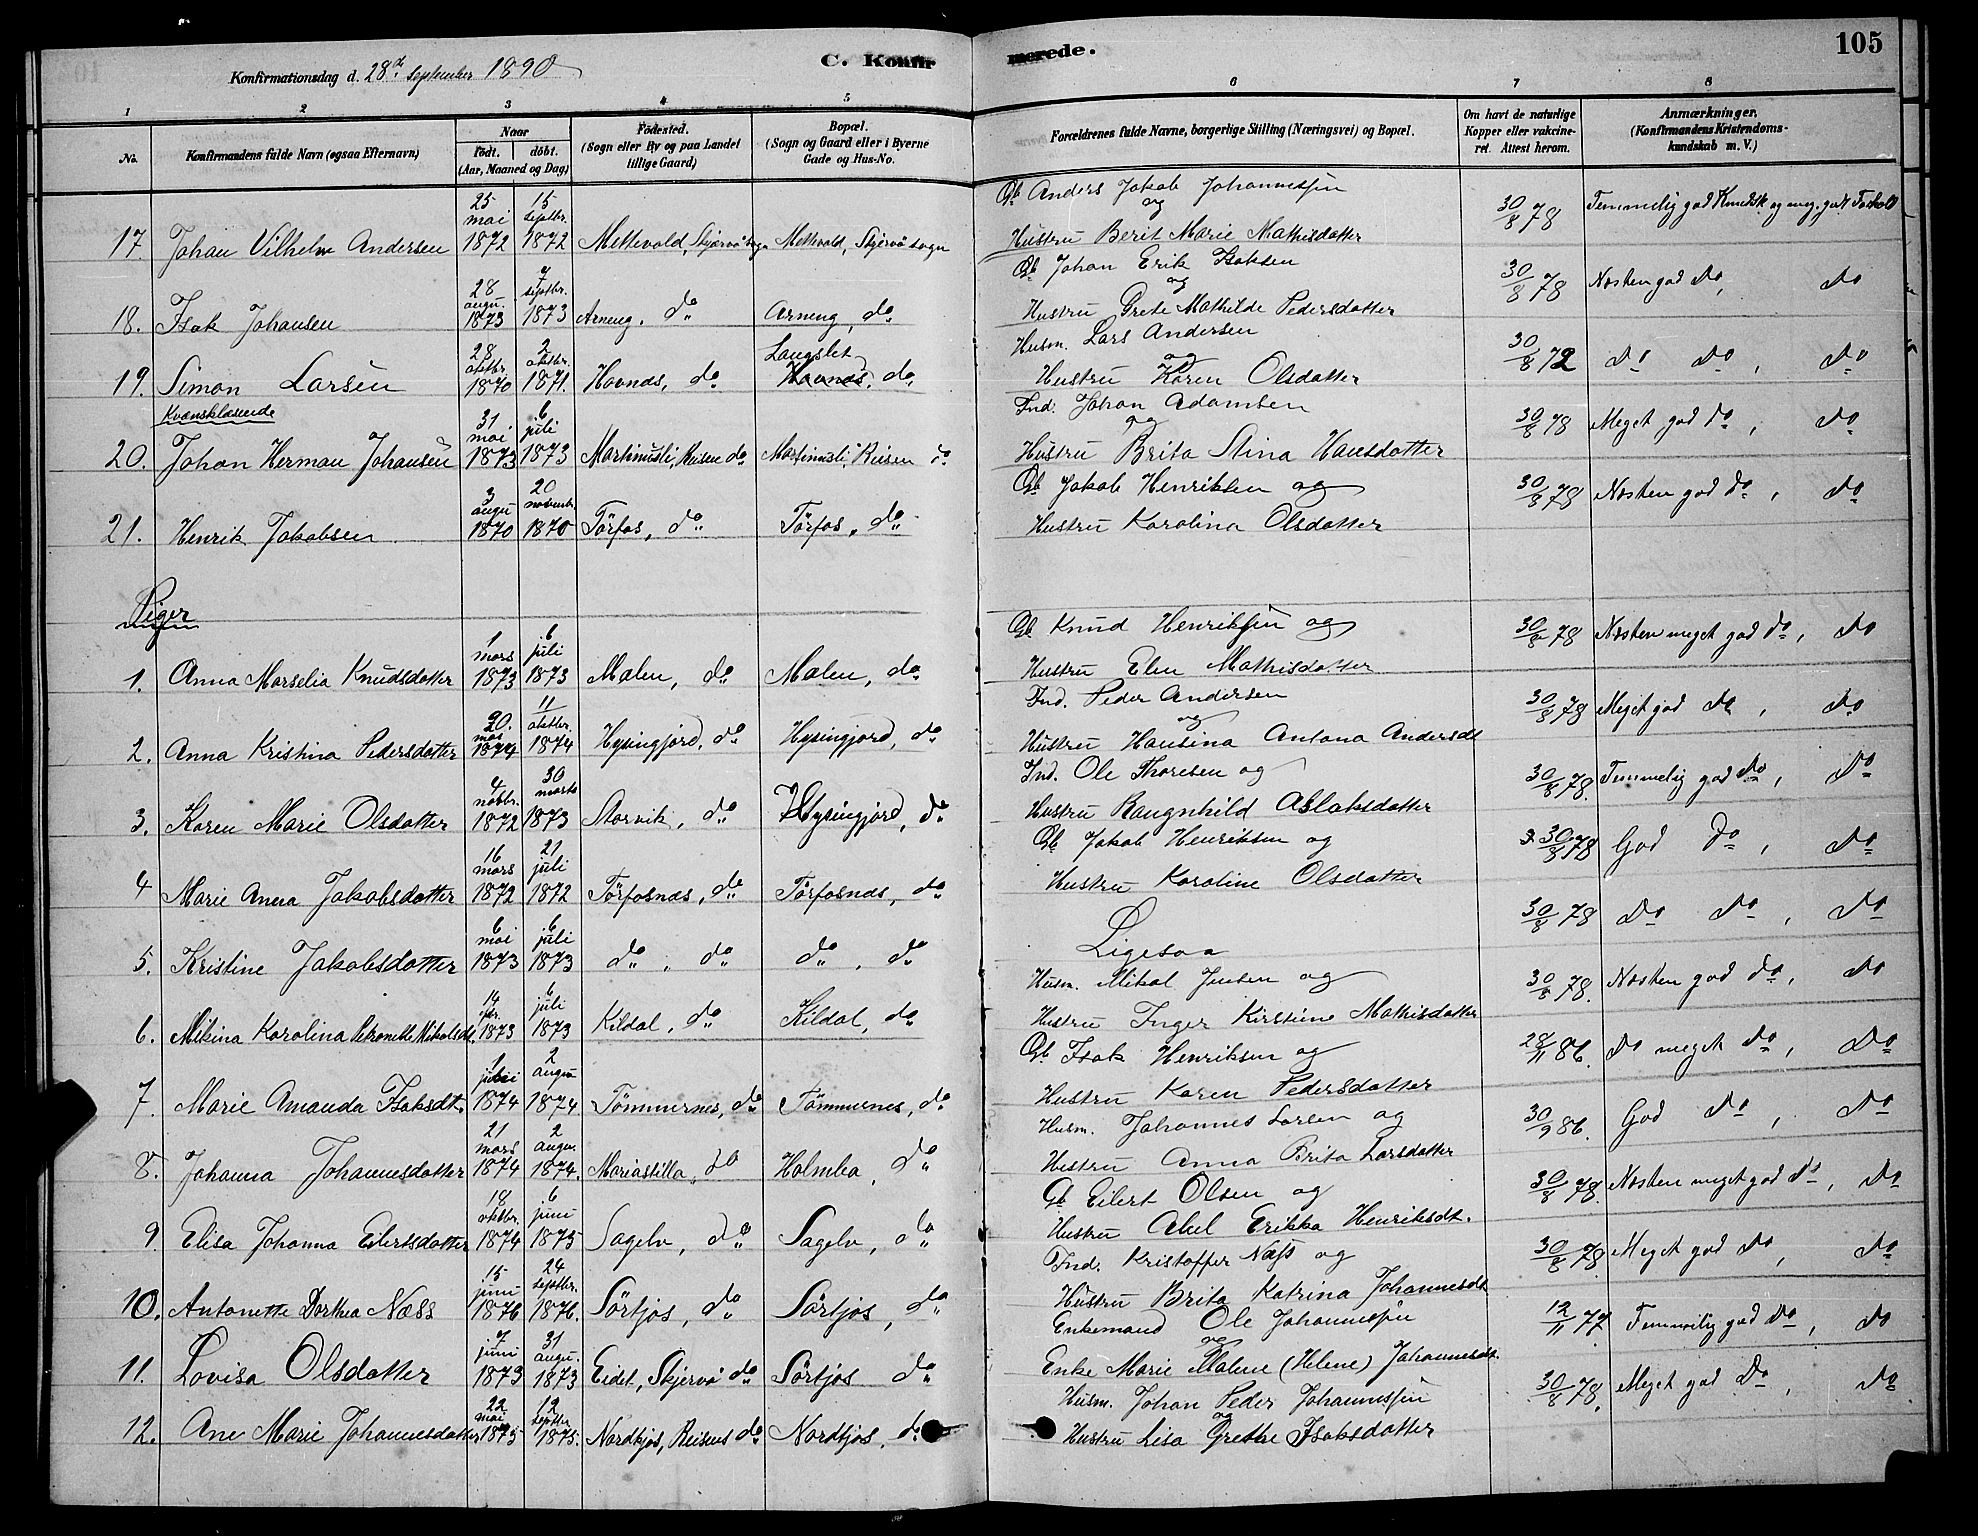 Konfirmationsdag d. 28de September 1890
C. Konfirmerede.
105
1 2 3 4 5 6 7 8
No.
Konfirmandens fulde Navn (ogsaa Efternavn)
Naar
født. døbt.
(Aar, Maaned og Dag)
Fødested.
(Sogn eller By og paa Landet
tillige Gaard)
Bopæl.
(Sogn og Gaard eller i Byerne
Gade og Hus-No.
Forældrenes fulde Navne, borgerlige Stilling (Næringsvei) og Bopæl.
Om havt de naturlige
Kopper eller vakcine-
ret. Attest herom.
Anmærkninger.
(Konfirmandens Kristendoms-
kundskab m. V.)
17. Johan Vilhelm Andersen 25 mai 1872 15 septbr. 1872 Mettevold, Skjærvø sogn Mettevold, Skjervø sogn Gb. Anders Jakob Johannessen og Hustru Berit Marie Mathisdatter 30/8 78 Temmelig god Kundsk og meg. godt Forhold
18. Isak Johansen 28 augu. 1873 7 septbr. 1873 Arneng, do Arneng, do Gb. Johan Erik Isaksen og Hustru Grete Mathilde Pedersdatter 30/8 78 Næsten god do, do
19. Simon Larsen 28 oktbr. 1870 2 oktbr. 1871. Havnæs, do Langslet Havnæs, do Husm. Lars Andersen og Hustru Karen Olsdatter 30/8 72 do do, do
Kvænsklasende
20. Johan Herman Johansen 31 mai 1873 6 juli 1873 Martinusli, Reisen do Martinusli, Reisen do Ind. Johan Adamsen og Hustru Brita Stina Hansdatter 30/8 78 Meget god do, do
21. Henrik Jakobsen 3 augu 1870 20 novembr 1870 Tørfos, do Tørfos, do Gb. Jakob Henriksen og Hustru Karolina Olsdatter 30/8 78 Næsten god do, do
Piger
1. Anna Marselia Knudsdatter 1 mars 1873 6 juli 1873 Malen, do Malen, do Gb. Knud Henriksen og Hustru Elen Mathisdatter 30/8 78 Næsten meget god do, do
2. Anna Kristina Pedersdatter 20. mai 1874 11 oktbr. 1874 Hysingjord, do Hysingjord, do Ind. Peder Andersen og Hustru Hansina Antona Andersdt 30/8 78 Meget god do, do
3. Karen Marie Olsdatter 4 novbr. 1872 30 marts 1873 Storvik, do Hysingjord, do Ind. Ole Thoresen og Hustru Raugnhild Aslaksdatter 30/8 78. Temmelig god do, do
4 Marie Anna Jakobsdatter 16 mars 1872 21 juli 1872 Tørfosnæs, do Tørfosnæs, do Gb. Jakob Henriksen og Hustru Karoline Olsdatter 30/8 78 God do, do
5. Kristine Jakobsdatter 6 mai 1873 6 juli 1873 do, do do, do Ligesaa 30/8 78 do do, do
6. Mikina Karolina Petronelle Mikalsdt. 14 1873 6 juli 1873 Kildal, do Kildal, do Husm. Mikal Jensen og Hustru Inger Kirstine Mathisdatter 30/8 78. Næsten god do, do
7. Marie Amanda Isaksdt. 1 juli 1874 2 augu 1874 Tømmernes, do Tømmernes, do Gb. Isak Henriksen og Hustru Karen Pedersdatter 28/11 86. do meget do, do
8. Johanna Johannesdatter 21 mars 1874 2 augu. 1874. Mariastilla, do Holmbo, do Husm. Johannes Larsen og Hustru Anna Brita Larsdatter 30/9 86. God do, do
9. Elisa Johanna Eilertsdatter 18 oktbr. 1874 6 juni 1875 Sagelv, do Sagelv, do Gb. Eilert Olsen og Hustru Abel Erikka Henriksdt. 30/8 78. Næsten meget god do, do
10. Antonette Dorthea Næss 15 juni 1876 24 septbr. 1876. Sørfjos, do Sørfjos, do Ind. Kristoffer Næss og Hustru Brita Katrina Johannesdt 30/8 78. Meget god do, do
11. Lovisa Olsdatter 7 juni 1873 31 augu. 1873 Eidet, Skjervø do Sørfjos do Enkemand Ole Johannessen og Enke Marie Malene (Helene) Johannesdt. 12/11 77 Temmelig god do, do
12. Ane Marie Johannesdatter 22 mai 1875 12 septbr. 1875. Nordkjos, Reisens do Nordkjos, do Husm. Johan Peder Johannessen og Hustru Lisa Grethe Isaksdatter 30/8 78. Meget god do, do